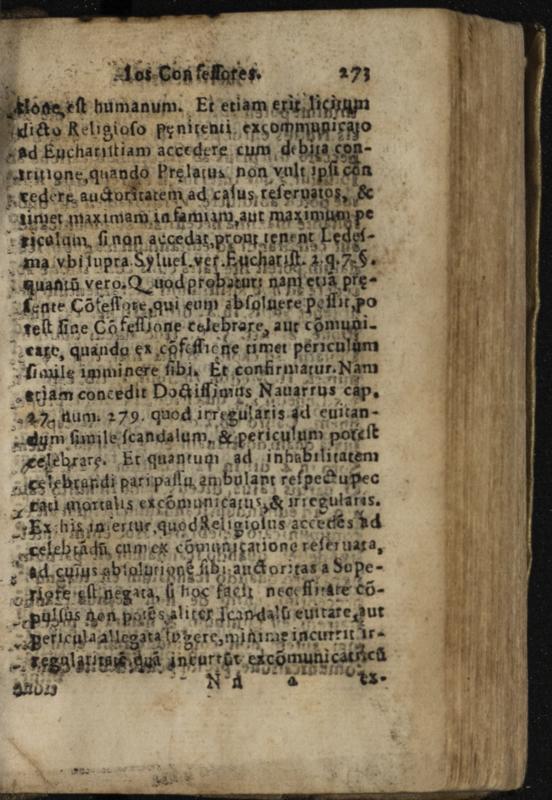 los Confessores. 273
tione, est humanum. Et etiam erit licitum
dicto Religioso penitenti excommunicato
ad Eucharistiam accedere cum debita con-
tritione, quando Prelatus non vult ipsi con
cedere auctoritatem ad casus reseruatos, &
timet maximam infamiam, aut maximum pe
riculum, si non accedat, prout tenent Ledes-
ma vbi supra Sylues. ver. Eucharist. 2. q. 7. §.
quantũ vero. Quod probatur: nam etiã prę-
sente Cõfessore, qui eum absoluere possit, po
test sine Cõfessione celebrare, aut cõmuni-
care, quando ex cõfessione timet periculum
simile imminere sibi. Et confirmatur. Nam
etiam concedit Doctissimus Nauarrus cap.
27. num. 279. quod irregularis ad euitan-
dum simile scandalum, & periculum potest
celebrare. Et quantum ad inhabilitatem
celebrandi pari passu ambulant respectu pec
cati mortalis excõmunicatus, & irregularis.
Ex his infertur, quod Religiosus accedẽs ad
celebrãdũ cum excõmunicatione reseruata,
ad cuius absolutionẽ sibi auctoritas a Supe-
riore est negata, si hoc facit necessitate cõ-
pulsus non potẽs aliter scandalũ euitare, aut
pericula allegata fugere, minime incurrit ir-
regularitatẽ, quã incurrũt excõmunicati cũ
N n ex-